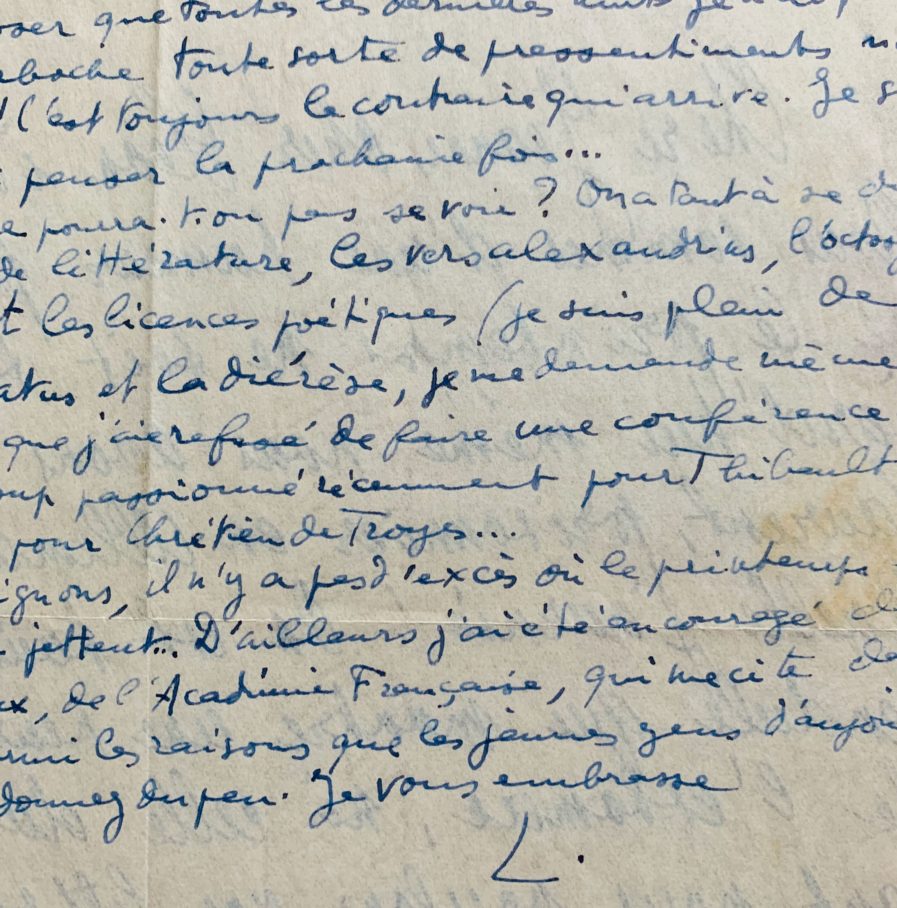 oser que toutes les dernières nuits je
toute sorte de pressentiments
! C'est toujours le contraire qui arrive. Je s
penser la prochaine fois...
e pourra-t-on pas se voir ? On a tant à se d
de littérature, les vers alexandrins, l'octos
t les licences poétiques (je suis plein de
atus et la diérèse, je me demande même
que j'aie refusé de faire une conférence
oup passionné récemment pour Thibault
pour Chrétien de Troyes...
ignons, il n'y a pas d'excès où le printemps
jettent... D'ailleurs j'ai été encouragé d
ux, de l'Académie Française, qui me cite da
rmi les raisons que les jeunes gens d'aujou
donnez du peu. Je vous embrasse
L.